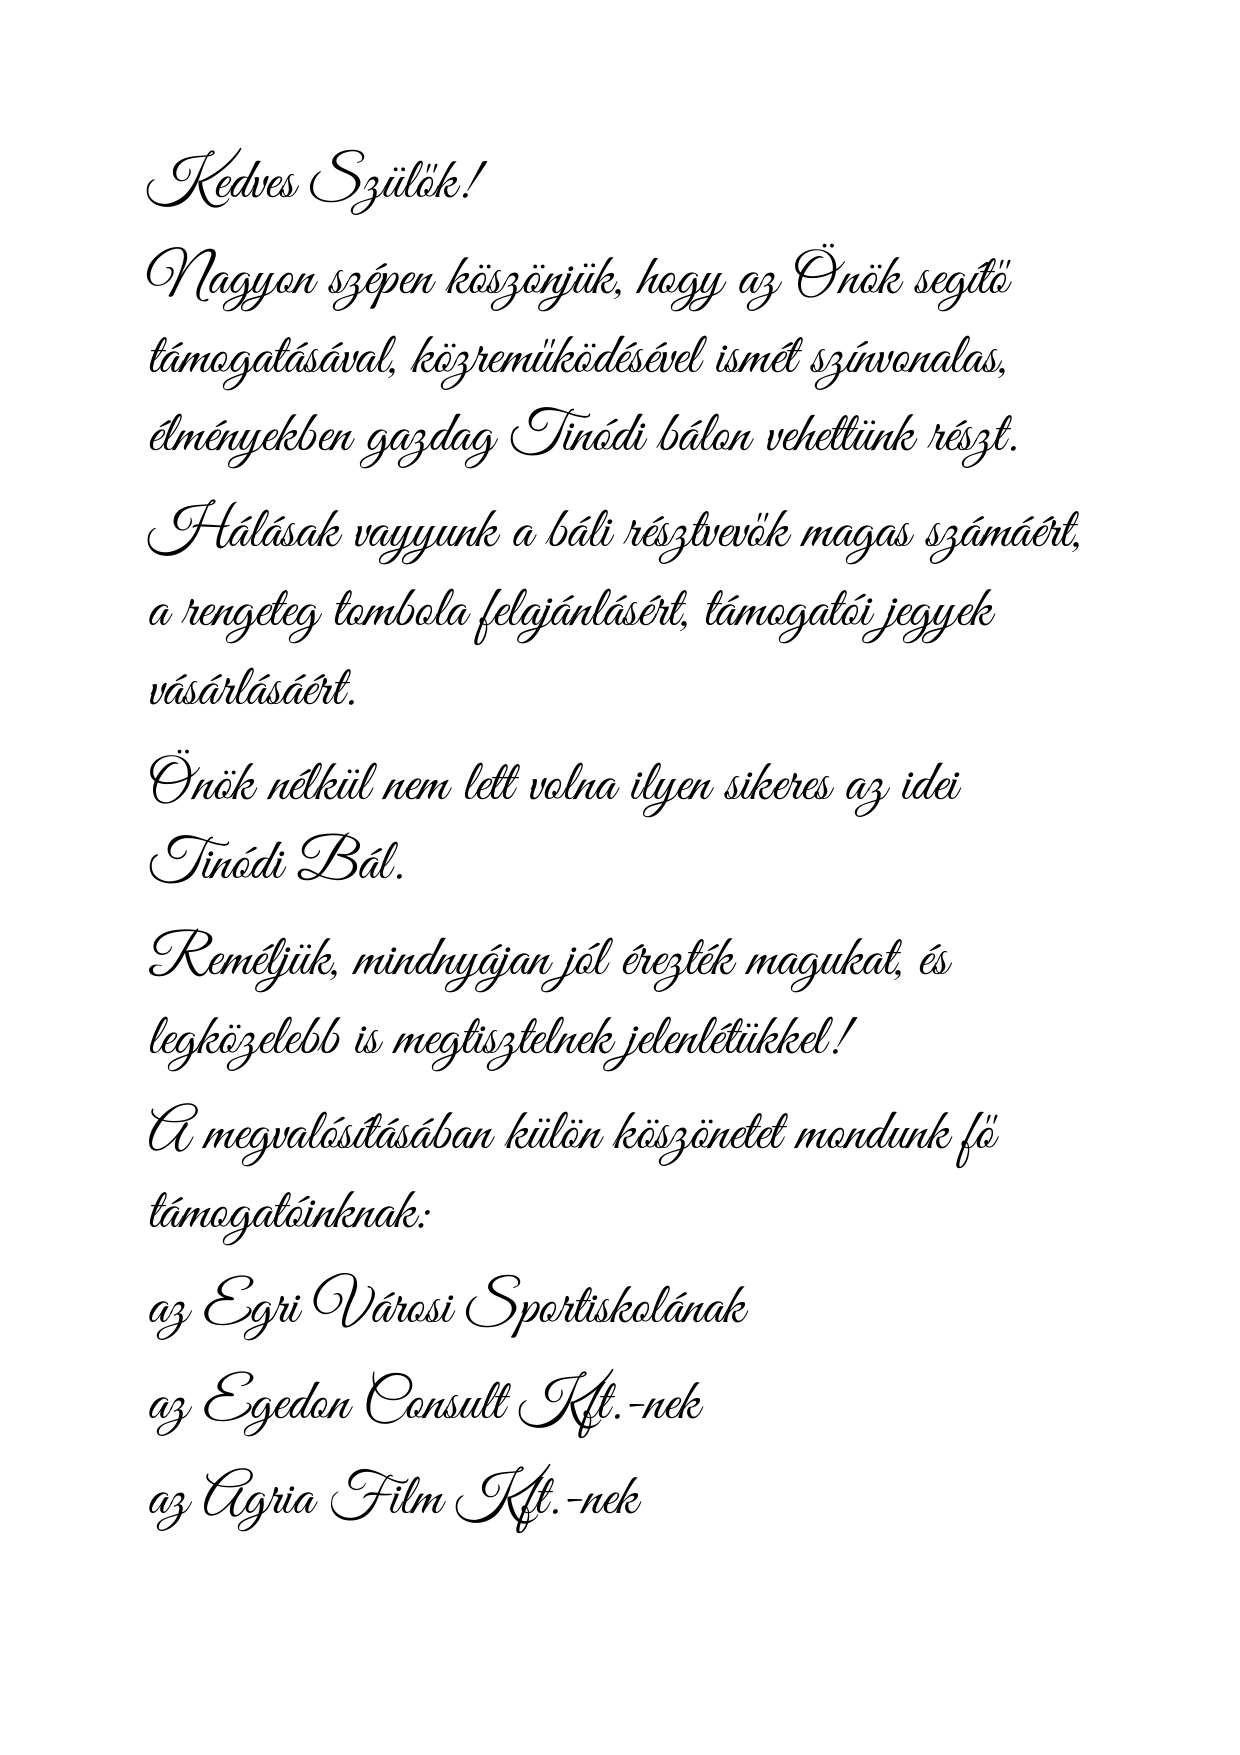 Kedves Szülők!
Nagyon szépen köszönjük, hogy az Önök segítő
támogatásával, közreműködésével ismét színvonalas,
élményekben gazdag Tinódi bálon vehettünk részt.
Hálásak vayyunk a báli résztvevők magas számáért,
a rengeteg tombola felajánlásért, támogatói jegyek
vásárlásáért.
Önök nélkül nem lett volna ilyen sikeres az idei
Tinódi Bál.
Reméljük, mindnyájan jól érezték magukat, és
legközelebb is megtisztelnek jelenlétükkel!
A megvalósításában külön köszönetet mondunk fő
támogatóinknak:
az Egri Városi Sportiskolának
az Egedon Consult Kft.-nek
az Agria Film Kft.-nek